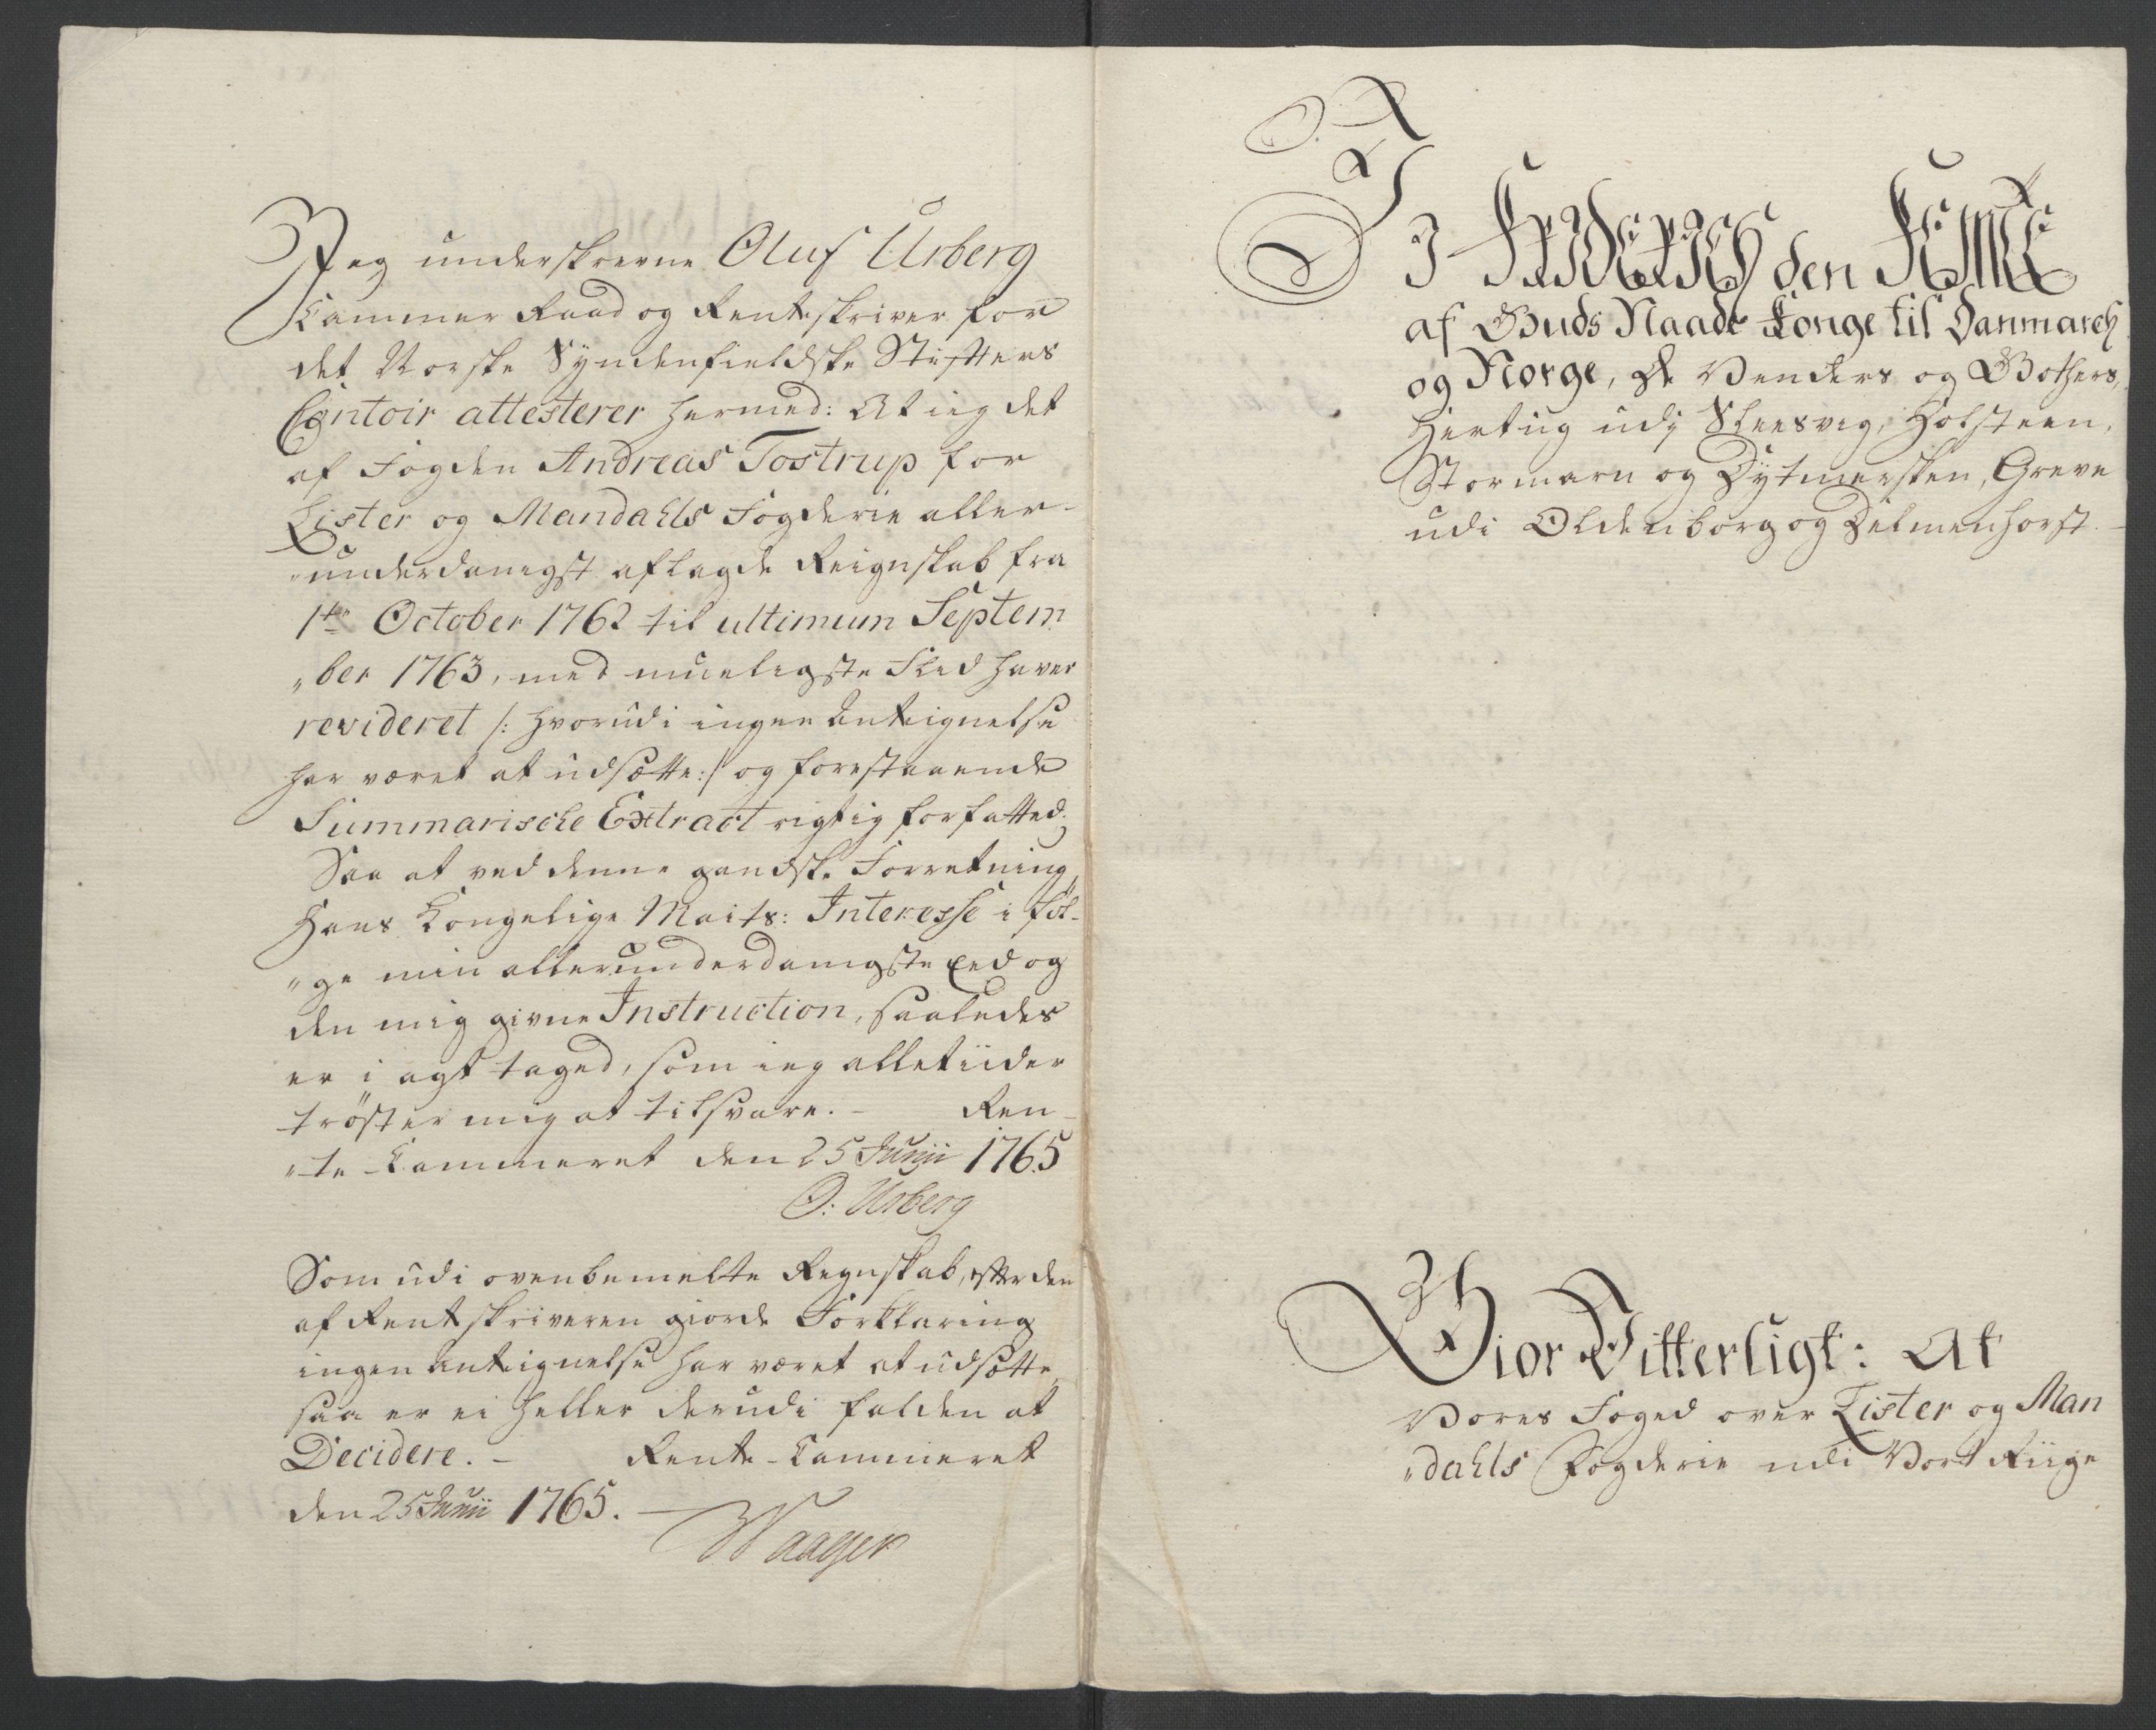 Jeg underskrevne Oluf Urberg
Cammer Raad og Renteskriver for
det Norske Syndenfieldske Stifters
Contoir attesterer hermed: At ieg det
af Fogden Andreas Tostrup for
Lister og Mandahls Fogderie aller-
„underdanigst aflagde Reignskab fra
1te October 1762 til ultimum Septem
„ber 1763, med mueligste Flid haver
revideret /: hvorudi ingen Anteignelse
har været at udsætte:/ og forestaaende
Summarische Extract rigtig forfatted;
Saa at ved denne gandske Forretning,
Hans Kongelige Maits: Interesse i føl-
„ge min allerunderdanigste Eed og
den mig givne Instruction, saaledes
er i agt taged, som ieg alletiider
trøster mig at tilsvare. – Ren-
„te-Cammeret den 25 Junii 1765
O: Urberg
Som udi ovenbemelte Regnskab, efter den
af Rentskriveren giorde Forklaring
ingen Anteignelse har været at udsætte,
saa er ei heller derudi falden at
Decidere. – Rente-Cammeret
den 25 Junii 1765. –
Waager
VI FRIDERICH den FEMTE
af Guds Naade Konge til Danmarch
og Norge, de Venders og Gothers,
Hertug udj Sleesvig, Holsteen,
Stormarn og Dytmersken, Greve
udi Oldenborg og Delmenhorst. –
Giør Vitterligt: At
Vores Foged over Lister og Man
„dahls Fogderie udi Vort Riige